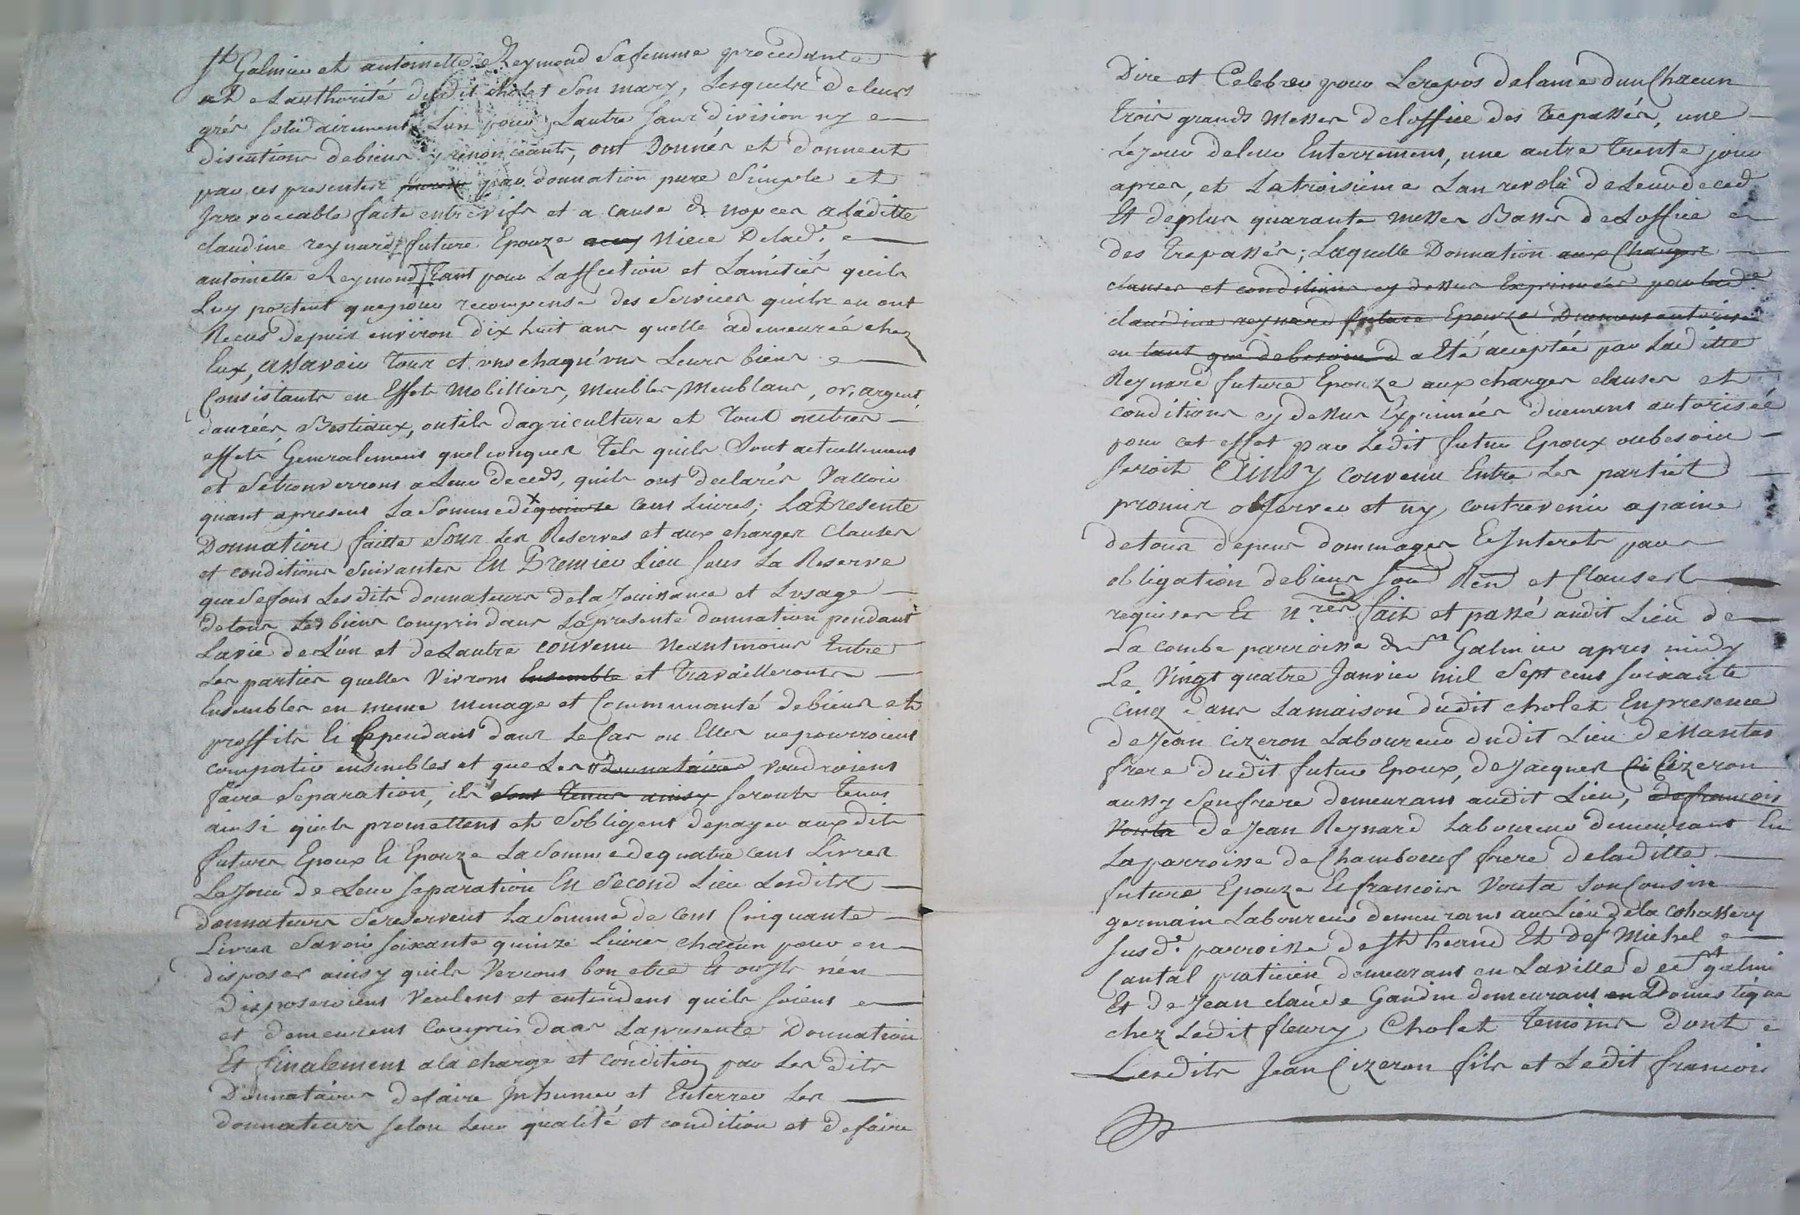 St Galmier et antoinette Reymond Sa femme procédante
et De Lauthorité dudit cholet Son mary, Lesquels de leurs
grés solidairement Lun pour Lautre sans division ny
discution de biens y renonceants, ont Donnés et donnent
par ces presentes par donnation pure Simple et
Irrevoccable faite entre vifs et a cause de nopces a Laditte
claudine reynard future Epouze niece De lade
antoinette Reymond, tant pour Laffection et Lamitié quils
Luy portent que pour recompense des Services quils en ont
Recus depuis environ dix huit ans quelle a demeurée chez
Eux, assavoir tous et uns chaqu'uns Leurs biens
Consistants en Effets Mobilliers, Meubles, Meublans, or, argent,
danrées Bestiaux, outils d'agriculture et tout autres
effets Generalement quelconques Tels quils Sont actuellement
et Se trouverront a Leur deceds, quils ont declarés valloir
quant apresent La Somme de quinze cens Livres; La Presente
Donnation faitte Sous Les Reserves et aux charges Clauses
et conditions Suivantes En Premier Lieu Sous La Reserve
que Se font Lesdits donnateurs de la Jouissance et Lusage
de tous Les biens compris dans La presente donnation pendant
La vie de L'un et de Lautre convenu Neantmoins Entre
Les parties quelles Vivront Ensemble et travailleront
Ensembles en meme menage et Communauté de biens et
proffits Et Cependant dans Le Cas ou Elles ne pourroient
compatir ensembles et que Les donnataires voudroient
faire Separation, ils sont tenus ainsy seront tenus
ainsi quils promettent et Sobligent de payer auxdits
futurs Epoux Et Epouze La Somme de quatre cens Livres
Le Jour de Leur separation En Second Lieu Lesdits
donnateurs Se reservent La Somme de Cens Cinquante
Livres Savoir soixante quinze Livres chacun pour en
disposer ainsy quils Verront bon etre Et ou ils n'en
disposeroient Veulent et entendent quils soient
et demeurent Compris dans La presente Donnation
Et finalement a la charge et condition par Les dits
Donnataires de faire Inhumer et Enterrer Les
donnateurs selon Leur qualité et condition et de faire
Dire et Celebrer pour Le repos de lame d'un Chacun
trois grands Messes de Loffice des Trepassés, une
Le jour de leur Enterrement, une autre trente jours
apres, et La troisieme Lan revolu de Leur deced
Et de plus quarante messes Basses de Loffice
des Trepassés; Laquelle Donnation aux Charges
clauses et conditions cy dessus Exprimées par lade
claudine reynard future Epouze Duement autorisée
en tant que de besoin a Eté acceptée par Laditte
Reynard future Epouze aux charges clauses et
conditions cy dessus Exprimées duement autorisée
pour cet effet par Ledit futur Epoux au besoin
seroit Ainsy convenu Entre Les parties
promis observer et ny contrevenir a paine
de tous depens dommages Et Interets par
obligation de biens Soud Ren et Clauses
requises Et nres fait et passé audit Lieu de
La combe parroisse de St Galmier apres midy
Le Vingt quatre Janvier mil Sept cens soixante
Cinq dans La maison dudit cholet En presence
de Jean Cizeron Laboureur dudit Lieu de Nantas
frere dudit futur Epoux, de Jacques Cizeron
aussy Son frere demeurans audit Lieu, de francois
Vouta de Jean Reynard Laboureur demeurant En
La parroisse de Chambœuf frere de laditte
future Epouze Et francois Vouta Son Cousin
germain Laboureur demeurans au Lieu de la Chassery
susde parroisse de St heand Et de Sr Michel
Cantal praticien demeurans en La ville de St galmi
Et de Jean claude Gandin demeurans en Domestique
chez Ledit fleury Cholet temoins dont
Lesdits Jean Cizeron fils et Ledit francois